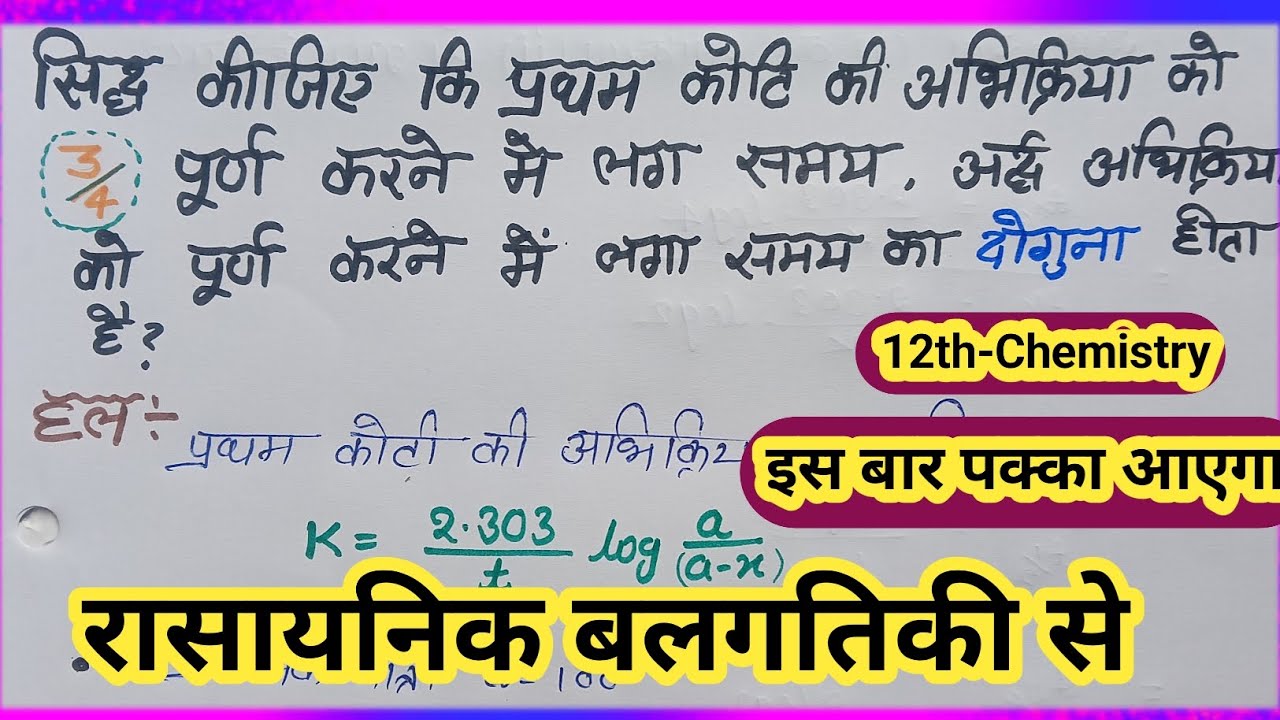 सिद्ध कीजिए कि प्रथम कोटि की अभिक्रिया को
3/4 पूर्ण करने में लग समय, अर्द्ध अभिक्रिय
को पूर्ण करने में लगा समय का दोगुना होता
है?
12th-Chemistry
हल :-
प्रथम कोटी की अभिक्रिय
इस बार पक्का आएगा
K = 2.303/t log a/(a-x)
रासायनिक बलगतिकी से